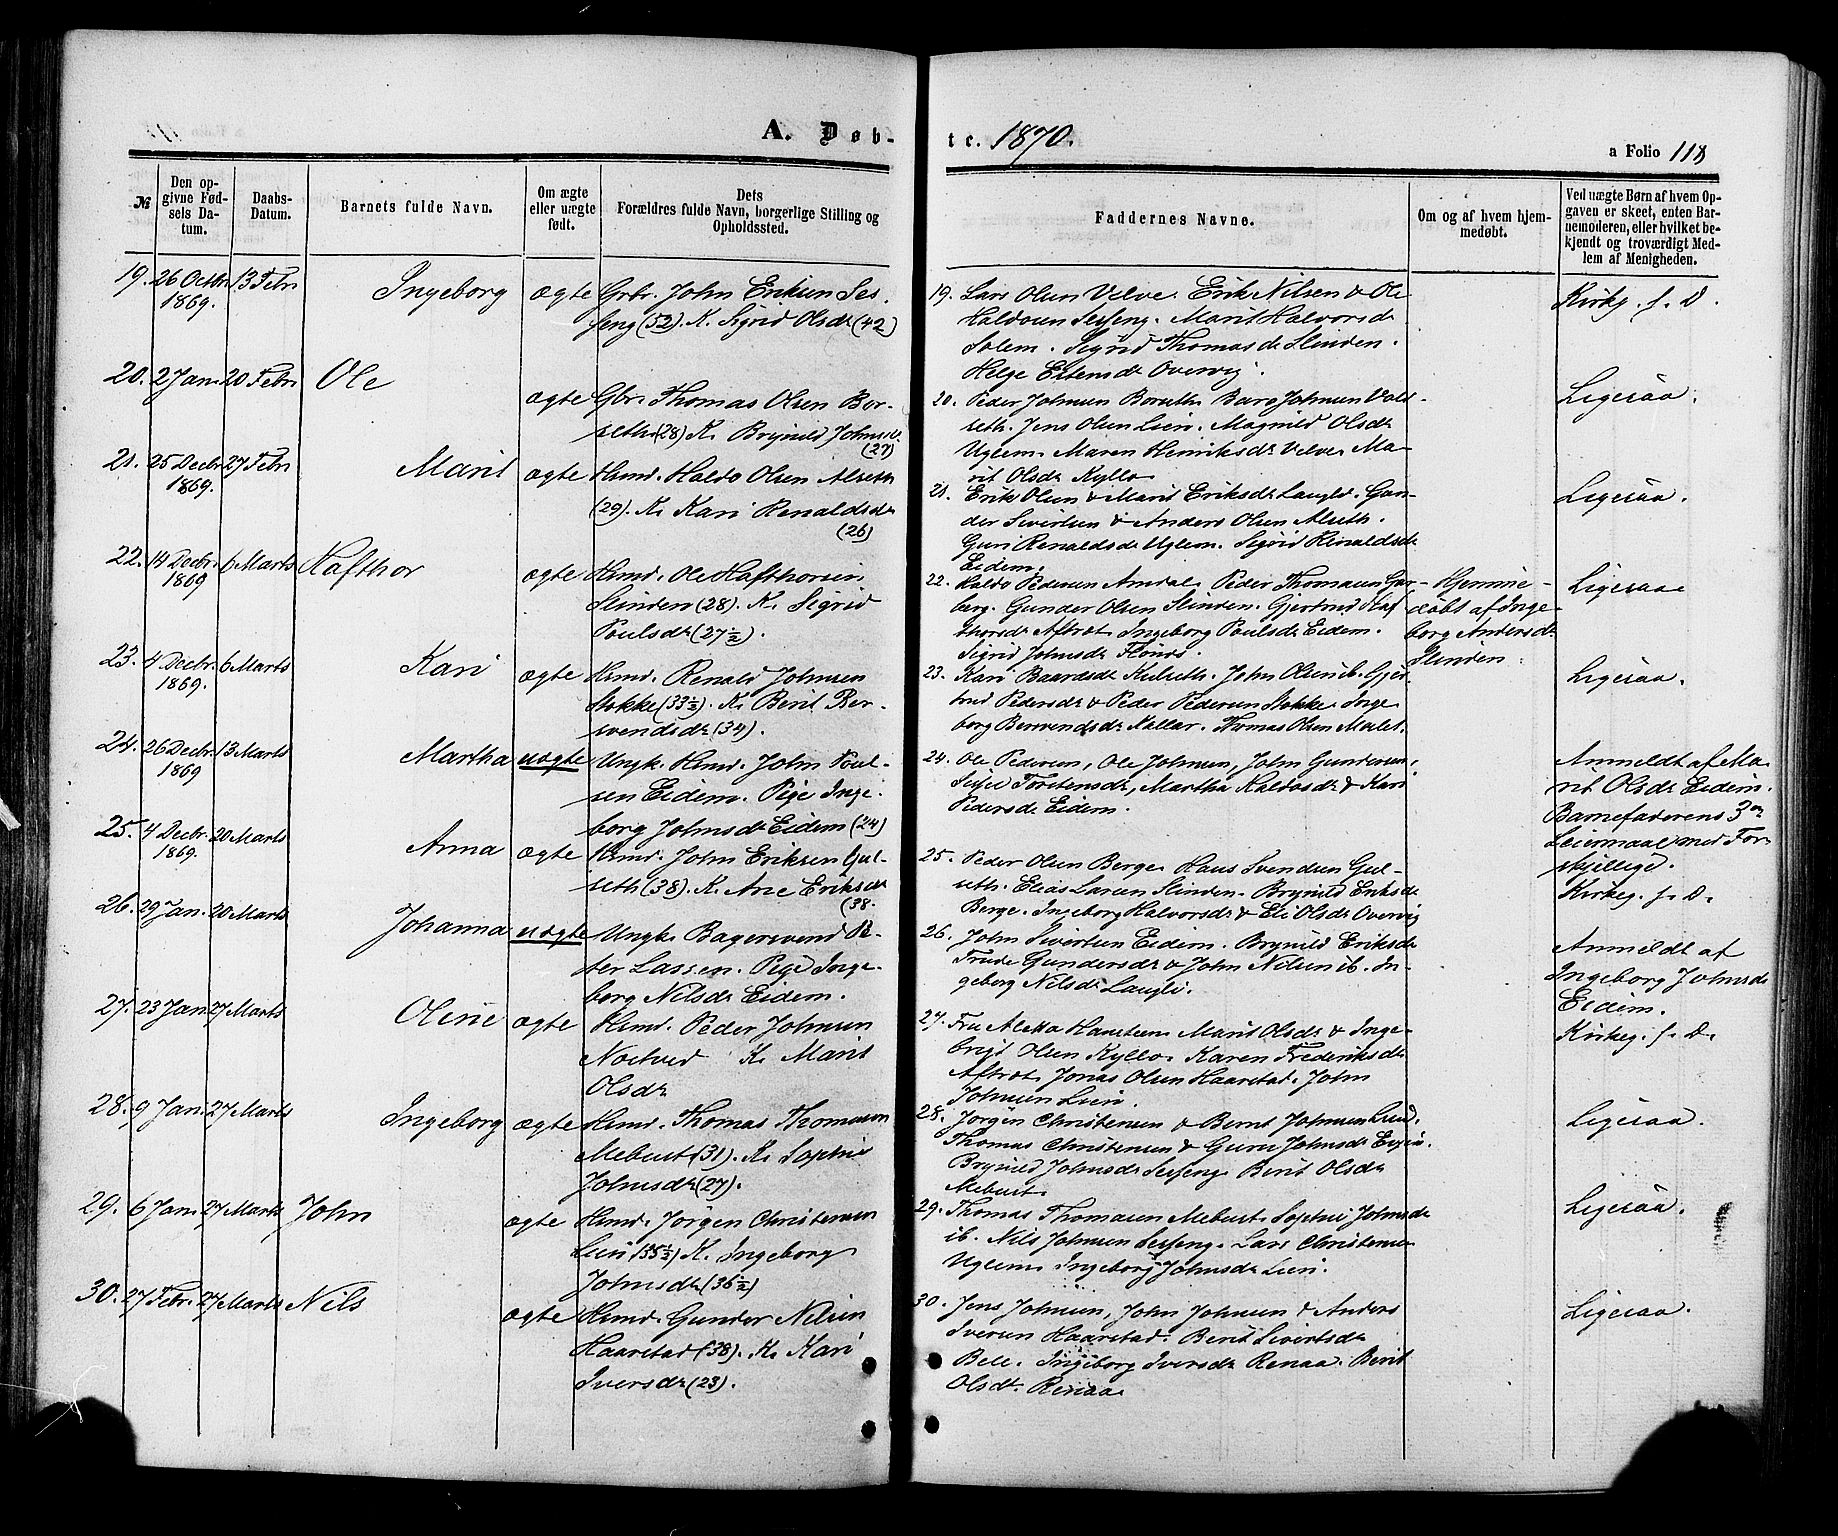 A. Døb-
te. 1870.
a Folio 118
№
Den op-
givne Fød-
sels Da-
tum.
Daabs-
Datum.
Barnets fulde Navn.
Om ægte
eller uægte
født.
Dets
Forældres fulde Navn, borgerlige Stilling og
Opholdssted.
Faddernes Navne.
Om og af hvem hjem-
medøbt.
Ved uægte Børn af hvem Op-
gaven er skeet, enten Bar-
nemoderen, eller hvilket be-
kjendt og troværdigt Med-
lem af Menigheden.
19. 26 Octbr 13 Febr Ingeborg ægte Gbr. John Eriksen Ses-
1869. seng (52). K. Sigrid Olsdr (42)
19. Lars Olsen Velve. Erik Nilsen & Ole
Haldosen Sesseng. Marit Halvorsdr
Solem. Sigrid Thomasdr Slinden.
Helge Estensdr Overvig.
Kirkg. s. D.
20. 2 Jan. 20 Febr Ole
ægte Gbr. Thomas Olsen Bor-
seth (28) K. Brynild Johnsd.
(27)
20. Peder Johnsen Borseth. Baro Johnsen Vold-
seth. Jens Olsen Lien. Magnild Olsdr
Uglem. Maren Henriksdr Velve. Ma-
rit Olsdr Kyllo.
Ligesaa.
21. 25 Decbr 27 Febr Marit ægte Husmd. Haldo Olsen Alseth
1869. (29). K. Kari Renaldsdr
(26)
21. Erik Olsen & Marit Eriksdr Langli. Gun-
der Sivertsen & Anders Olsen Alseth.
Guri Renaldsdr Uglem. Sigrid Renaldsdr
Eidem.
Ligesaa.
22. 14 Decbr. 6 Marts Hafthor ægte Husmd. Ole Hafthorsen
1869 Slinden (28). K. Sigrid
Poulsdr (27½).
22. Haldo Pedersen Amdal. Peder Thomasen Gar-
berg. Gunder Olsen Slinden. Gjertrud Haf-
thorsdr Aftret. Ingeborg Poulsdr Eidem.
Sigrid Johnsdr Flonæs.
Hjemme-
døbt af Inge-
borg Andersdr
Slinden.
Ligesaa
23. 4 Decbr. 6 Marts Kari ægte Husmd. Renald Johnsen
1869. Stokke (33½). K. Berit Ber-
svendsdr (34).
23. Kari Baardsdr Kulseth. John Olsen ib. Gjer-
trud Pedersdr & Peder Pedersen Stokke. Inge-
borg Bersvendsdr . Thomas Olsen .
Ligesaa.
24. 26 Decbr. 13 Marts Martha uægte Ungk. Husmd. John Poul-
1869 sen Eidem. Pige Inge-
borg Johnsdr Eidem (24)
24. Ole Pedersen, Ole Johnsen, John Gundersen,
Torstensdr, Martha Haldosdr & Kari
Pedersdr Eidem.
Anmeldt af Ma-
rit Olsdr Eidem.
Barnefaderens 3die
Leiermaal med For-
skjellige.
25. 4 Decbr. 20 Marts Anna ægte Husmd. John Eriksen Gul-
1869. seth (38). K. Ane Eriksdr
(38.
25. Peder Olsen Berge. Hans Svendsen Gul-
seth. Elias Larsen Slinden. Brynild Eriksdr
Berge. Ingeborg Halvorsdr & Eli Olsdr Overvig
Kirkeg. s. D.
26. 29 Jan. 20 Marts Johanna uægte Ungk. Bagersvend Pe-
ter Lassen. Pige Inge-
borg Nilsdr Eidem.
26. John Sivertsen Eidem. Brynild Eriksdr
Frude Gundersdr & John Nilsen ib. In-
geborg Nilsdr Langli.
Anmeldt af
Ingeborg Johnsdr
Eidem.
27. 23 Jan. 27 Marts Oline ægte Husmd. Peder Johnsen
K. Marit
Olsdr
27. Fru Aletta Hansteen. Marit Olsdr & Inge-
brigt Olsen Kyllo. Karen Frederiksdr
Aftret. Jonas Olsen Haarstad. John
Johnsen Lien.
Kirkeg. s. D.
28. 9 Jan. 27 Marts Ingeborg ægte Husmd. Thomas Thomasen
Mebust (31). K. Sophie
Johnsdr (27).
28. Jørgen Christensen & Bernt Johnsen Lien.
Thomas Christensen & Guru Johnsdr .
Brynild Johnsdr Sesseng. Berit Olsdr
Mebust.
Ligesaa.
29. 6 Jan. 27 Marts John ægte Husmd. Jørgen Christensen
Lien (35½) K. Ingeborg
Johnsdr (36½)
29. Thomas Thomasen Mebust. Sophie Johnsdr
ib. Nils Johnsen Sesseng. Lars Christensen
Uglem. Ingeborg Johnsdr Lien.
Ligesaa.
30. 27 Febr. 27 Marts Nils ægte Husmd. Gunder Nilsen
Haarstad (38). K. Kari
Iversdr (23).
30. Jens Johnsen, John Johnsen & Anders
Iversen Haarstad. Berit Sivertsdr
Bell. Ingeborg Iversdr Renaa. Berit
Olsdr Renaa
Ligesaa.